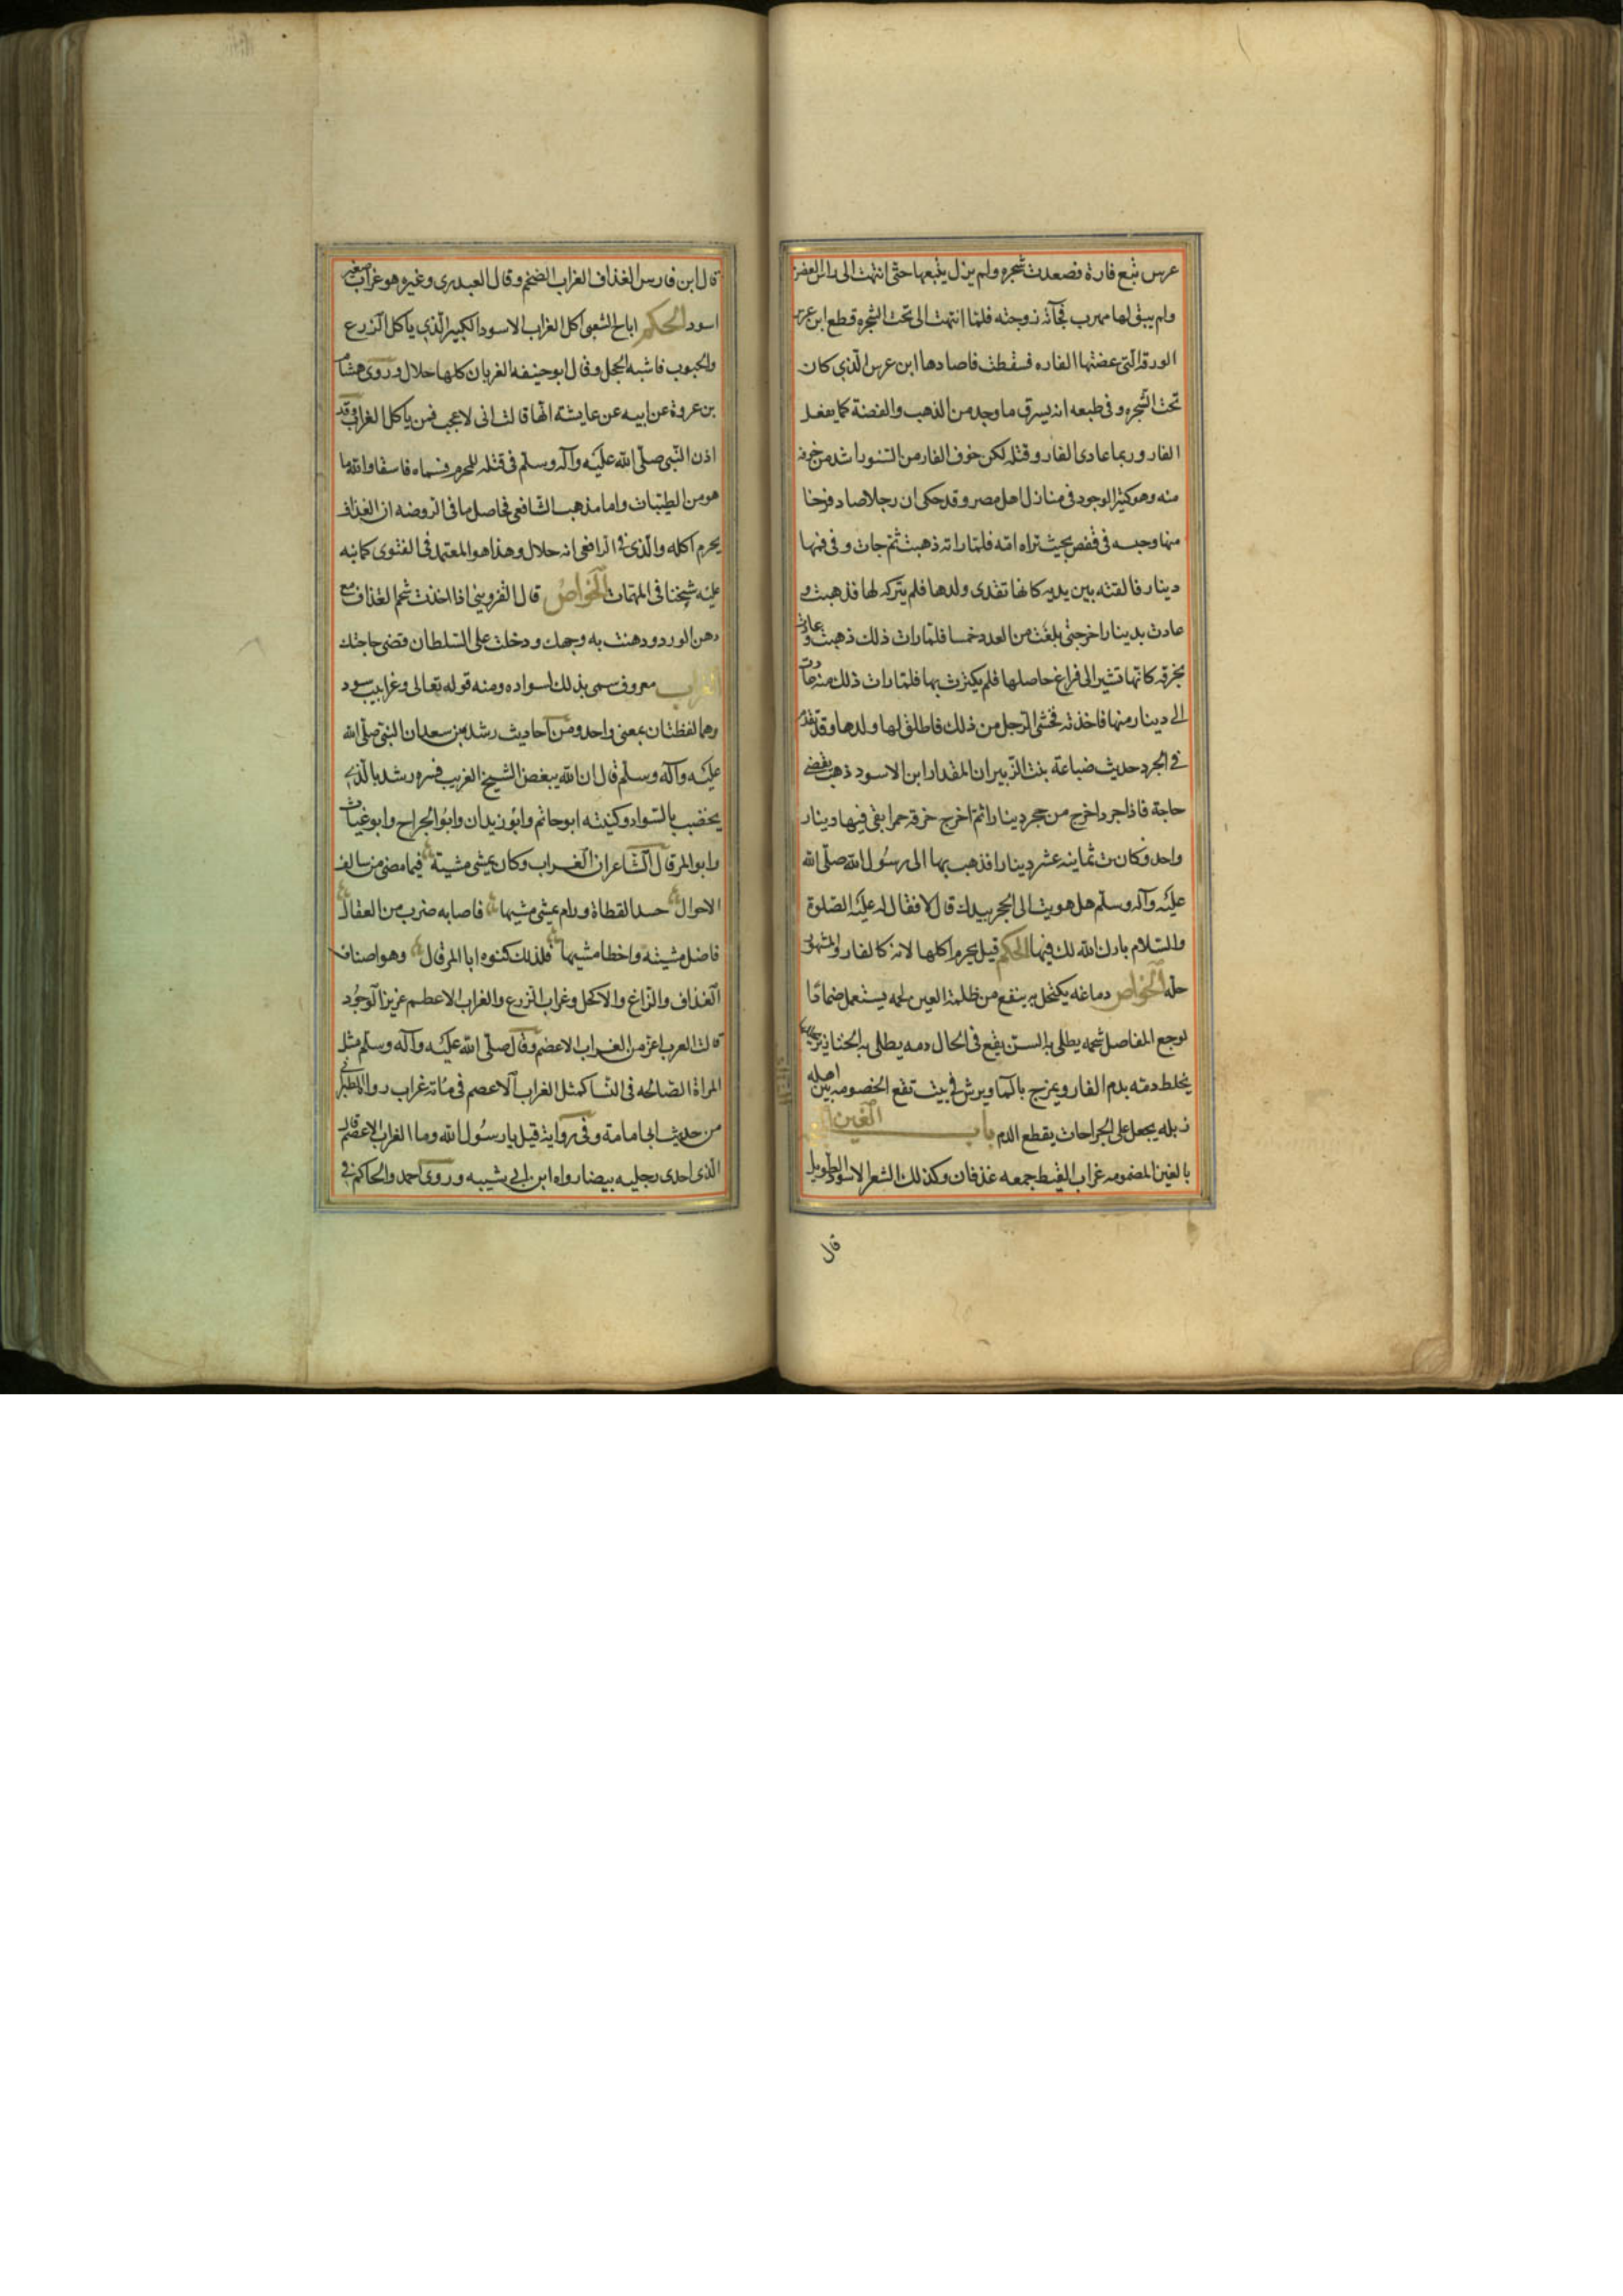 عرس تبع فارة فصعدت شجره ولم يزل يتبعها حتى انتهت الى راس الغصن
ولم يبق لها مهرب فجآته زوجته فلما انتهت الى تحت الشجره قطع ابن عرس
الورقة التى عضتها الفاره فسقطت فاصادها ابن عرس الذي كان
تحت الشجره وفى طبعه انه يسرق ما وجد من الذهب والفضة كما يفعل
الفار وربما عادى الفار وقتله لكن خوف الفار من السنور اشد من خوفه
منه وهو كثير الوجود فى منازل اهل مصر وقد حكى ان رجلا صاد فرخا
منها وحبسه فى قفص بحيث تراه امه فلما راته ذهبت ثم جات وفى فمها
دينار فالقته بين يديه كانها تفدى ولدها فلم يتركه لها فذهبت و
عادت بدينار اخر حتى بلغت من العدد خمسا فلما رات ذلك ذهبت وعادت
بخرقه كانها تشير الى فراغ حاصلها فلم يكترث بها فلما رات ذلك منه عادت
الى دينار منها فاخذته فخشى الرجل من ذلك فاطلق لها ولدها وقد تقدم
فى الجرد حديث ضباعة بنت الزبير ان المقداد ابن الاسود ذهب يقضى
حاجة فاذا جرد اخرج من حجر دينارا ثم اخرج خرقه حمرا بقى فيها دينار
واحد وكانت ثمانيه عشر دينارا فذهب بها الى رسول الله صلى الله
عليه وآله وسلم هل هويت الى الحجر بيدك قال لا فقال له عليه الصلوة
والسلام بارك الله لك فيها الحكم قيل يحرم اكلها لانه كالفار والمشهور
حله الخواص دماغه يكتحل به ينفع من ظلمة العين لحمه يستعمل ضمادا
لوجع المفاصل شحمه يطلى به السن يقع فى الحال دمه يطلى به الخنازير
يخلط دمه بدم الفار ويمزج بالمآ ويرش فى بيت تقع الخصومه بين اهله
زبله يجعل على الجراحات يقطع الدم باب الغين
بالغين المضمومه غراب القيط جمعه غذفان وكذلك الشعر الاسود الطويل
قال
قال ابن فارس الغذاف الغراب الضخم وقال العبدرى وغيره هو غراب صغير
اسود الحكم اباح الشعبى اكل الغراب الاسود الكبير الذي ياكل الزرع
والحبوب فاشبه الحجل وقال ابو حنيفه الغربان كلها حلال وروى هشام
بن عروة عن ابيه عن عايشة انها قالت انى لاعجب فمن ياكل الغراب وقد
اذن النبى صلى الله عليه وآله وسلم فى قتله للمحرم وسماه فاسقا والله ما
هو من الطيبات واما مذهب الشافعى فحاصل ما فى الروضه ان الغذاف
يحرم اكله والذى فى الرافعى انه حلال وهذا هو المعتمد فى الفتوى كما نبه
عليه شيخنا فى المهمات الخواص قال القزوينى اذا اخذت شحم الغذاف مع
دهن الورد ودهنت به وجهك ودخلت على السلطان قضى حاجتك
الغراب معروف سمى بذلك لسواده ومنه قوله تعالى وغرابيب سود
وهما لفظتان بمعنى واحد ومن احاديث رشد بن سعد ان النبى صلى الله
عليه وآله وسلم قال ان الله يبغض الشيخ الغريب فسره رشد بالذى
يخضب بالسواد وكنيته ابو حاتم وابو زيدان وابو الجراح وابو غياث
وابو المرقال الشاعر ان الغراب وكان يمشى مشية فيما مضى من سالف
الاحوال حسد القطاة ورام يمشى مشيها فاصابه ضرب من العقال
فاضل مشيته واخطا مشيها فلذلك كنوه ابا المرقال وهو اصناف
الغذاف والزاغ والاكحل وغراب الزرع والغراب الاعظم عزيز الوجود
قالت العرب اعز من الغراب الاعصم وقال صلى الله عليه وآله وسلم مثل
المراة الصالحه فى النسا كمثل الغراب الاعصم فى مائة غراب رواه الطبرى
من حديث ابى امامة وفى رواية قيل يا رسول الله وما الغراب الاعصم قال
الذى احدى رجليه بيضا رواه ابن ابى شيبه وروى احمد والحاكم فى